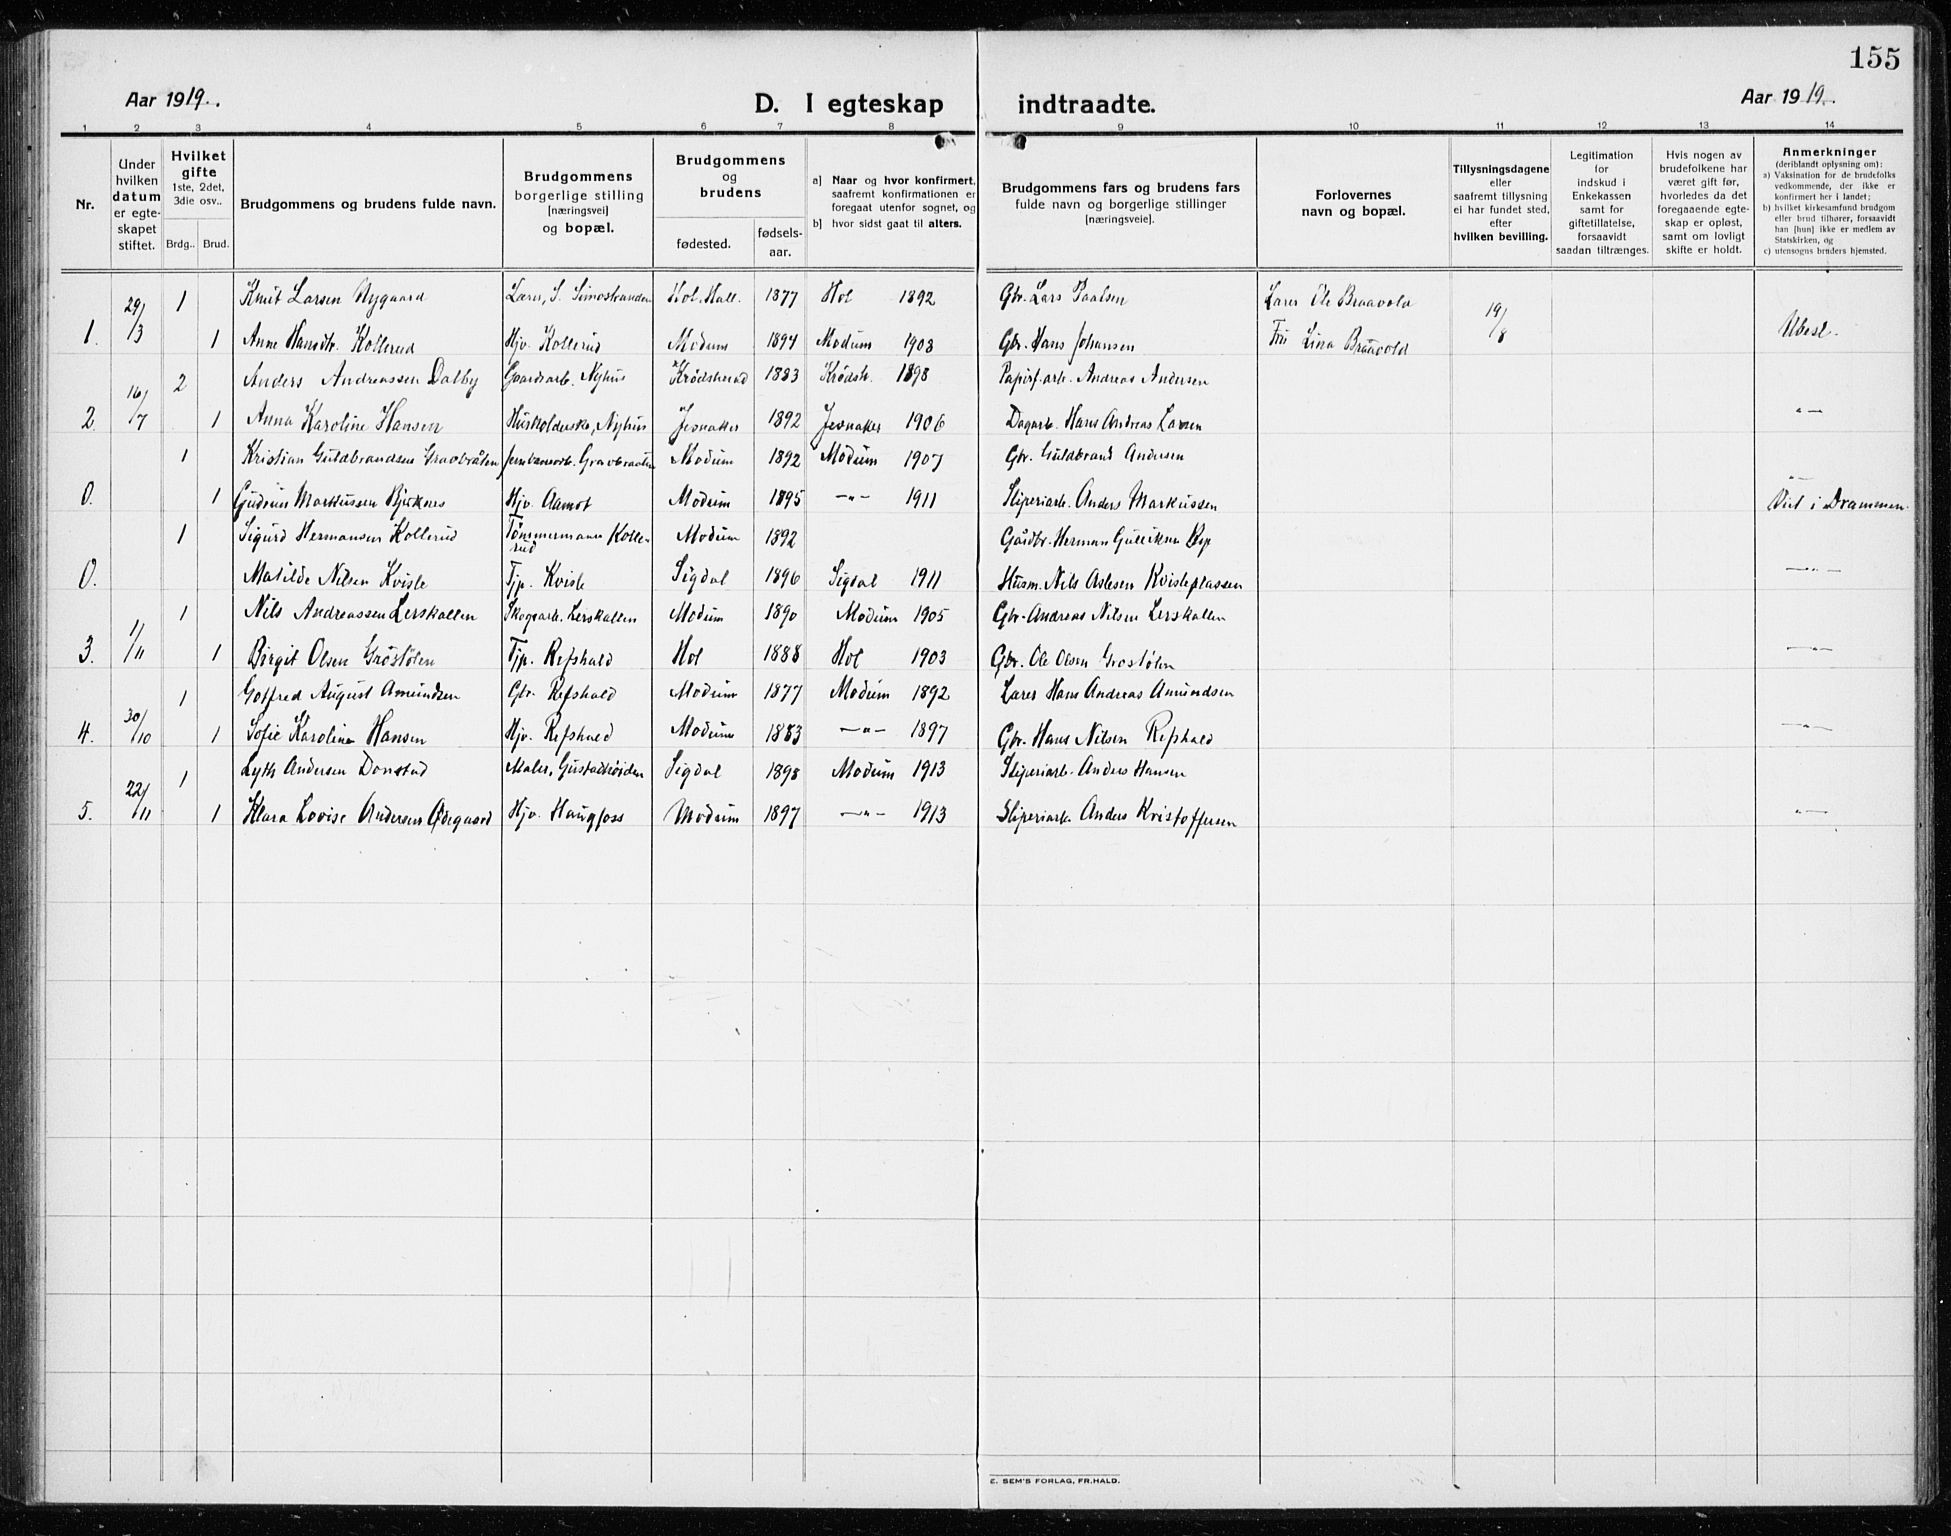 155
Aar 1919.
D. I egteskap indtraadte.
Aar 1919.
1 2 3 4 5 6 7 8 9 10 11 12 13 14
Nr.
Under hvilken datum er egte-skapet stiftet.
Hvilket gifte 1ste, 2det, 3die osv..
Brdg.. Brud.
Brudgommens og brudens fulde navn.
Brudgommens borgerlige stilling [næringsvei] og bopæl.
Brudgommens og brudens
fødested.
fødsels-aar.
a] Naar og hvor konfirmert, saafremt konfirmationen er foregaat utenfor sognet, og
b] hvor sidst gaat til alters.
Brudgommens fars og brudens fars fulde navn og borgerlige stillinger [næringsveie].
Forlovernes navn og bopæl.
Tillysningsdagene eller saafremt tillysning ei har fundet sted, efter hvilken bevilling.
Legitimation for indskud i Enkekassen samt for giftetillatelse, forsaavidt saadan tiltrænges.
Hvis nogen av brudefolkene har været gift før, hvorledes da det foregaaende egte-skap er opløst, samt om lovligt skifte er holdt.
Anmerkninger (deriblandt oplysning om):
a) Vaksination for de brudefolks vedkommende, der ikke er konfirmert her i landet;
b) hvilket kirkesamfund brudgom eller brud tilhører, forsaavidt han [hun] ikke er medlem av Statskirken, og
c) utensogns bruders hjemsted.
29/3 1 Knut Larsen Nygaard Lærer, S. Simostranden Hol. Hall. 1877 Hol 1892 Gbr. Lars Paalsen Lærer Ole Braavold 19/8
1. 1 Anne Hansdtr. Kollerud Hjv. Kollerud Modum 1894 Modum 1908 Gbr. Hans Johansen Fru Lina Braavold Ubesl.
16/7 2 Anders Andreassen Dalby Gaardsarb. Nyhus Krødsherad 1883 Krødsh. 1898 Papirf.arb. Andreas Andersen
2. 1 Anna Karoline Hansen Husholderske, Nyhus Jevnaker 1892 Jevnaker 1906 Dagarb. Hans Andreas Larsen —"—
1 Kristian Guldbrandsen Gravbråten Jernbanearb. Gravbraaten Modum 1892 Modum 1907 Gbr. Guldbrand Andersen
0. 1 Gudrun Markussen Hjv. Aamot Modum 1895 —"— 1911 Sliperiarb. Anders Markussen —"— Viet i Drammen.
1 Sigurd Hermansen Kollerud Tømmermann Kolle-rud Modum 1892 Gårdbr. Herman
0. Matilde Nilsen Kvisle Tjp. Kvisle Sigdal 1896 Sigdal 1911 Husm. Nils Aslesen Kvisleplassen —"—
1/11 1 Nils Andreassen Lerskallen Skogsarb. Lerskallen Modum 1890 Modum 1905 Gbr. Andreas Nilsen Lerskallen
3. 1 Birgit Olsen Grøstølen Tjp. Refshald Hol 1888 Hol 1903 Gbr. Ole Olsen Grøstølen —"—
30/10 1 Gotfred August Amundsen Gbr. Refshald Modum 1877 Modum 1892 Lærer Hans Andreas Amundsen
4. 1 Sofie Karoline Hansen Hjv. Refshald Modum 1883 —"— 1897 Gbr. Hans Nilsen Refshald —"—
22/11 1 Lyth Andersen Donstad Maler, Gustadhøiden Sigdal 1898 Modum 1913 Sliperiarb. Anders Hansen
5. 1 Klara Lovise Andersen Ødegaard Hjv. Haugfoss Modum 1897 —"— 1913 Sliperiarb. Anders Kristoffersen —"—
E. SEM'S FORLAG, FR.HALD.